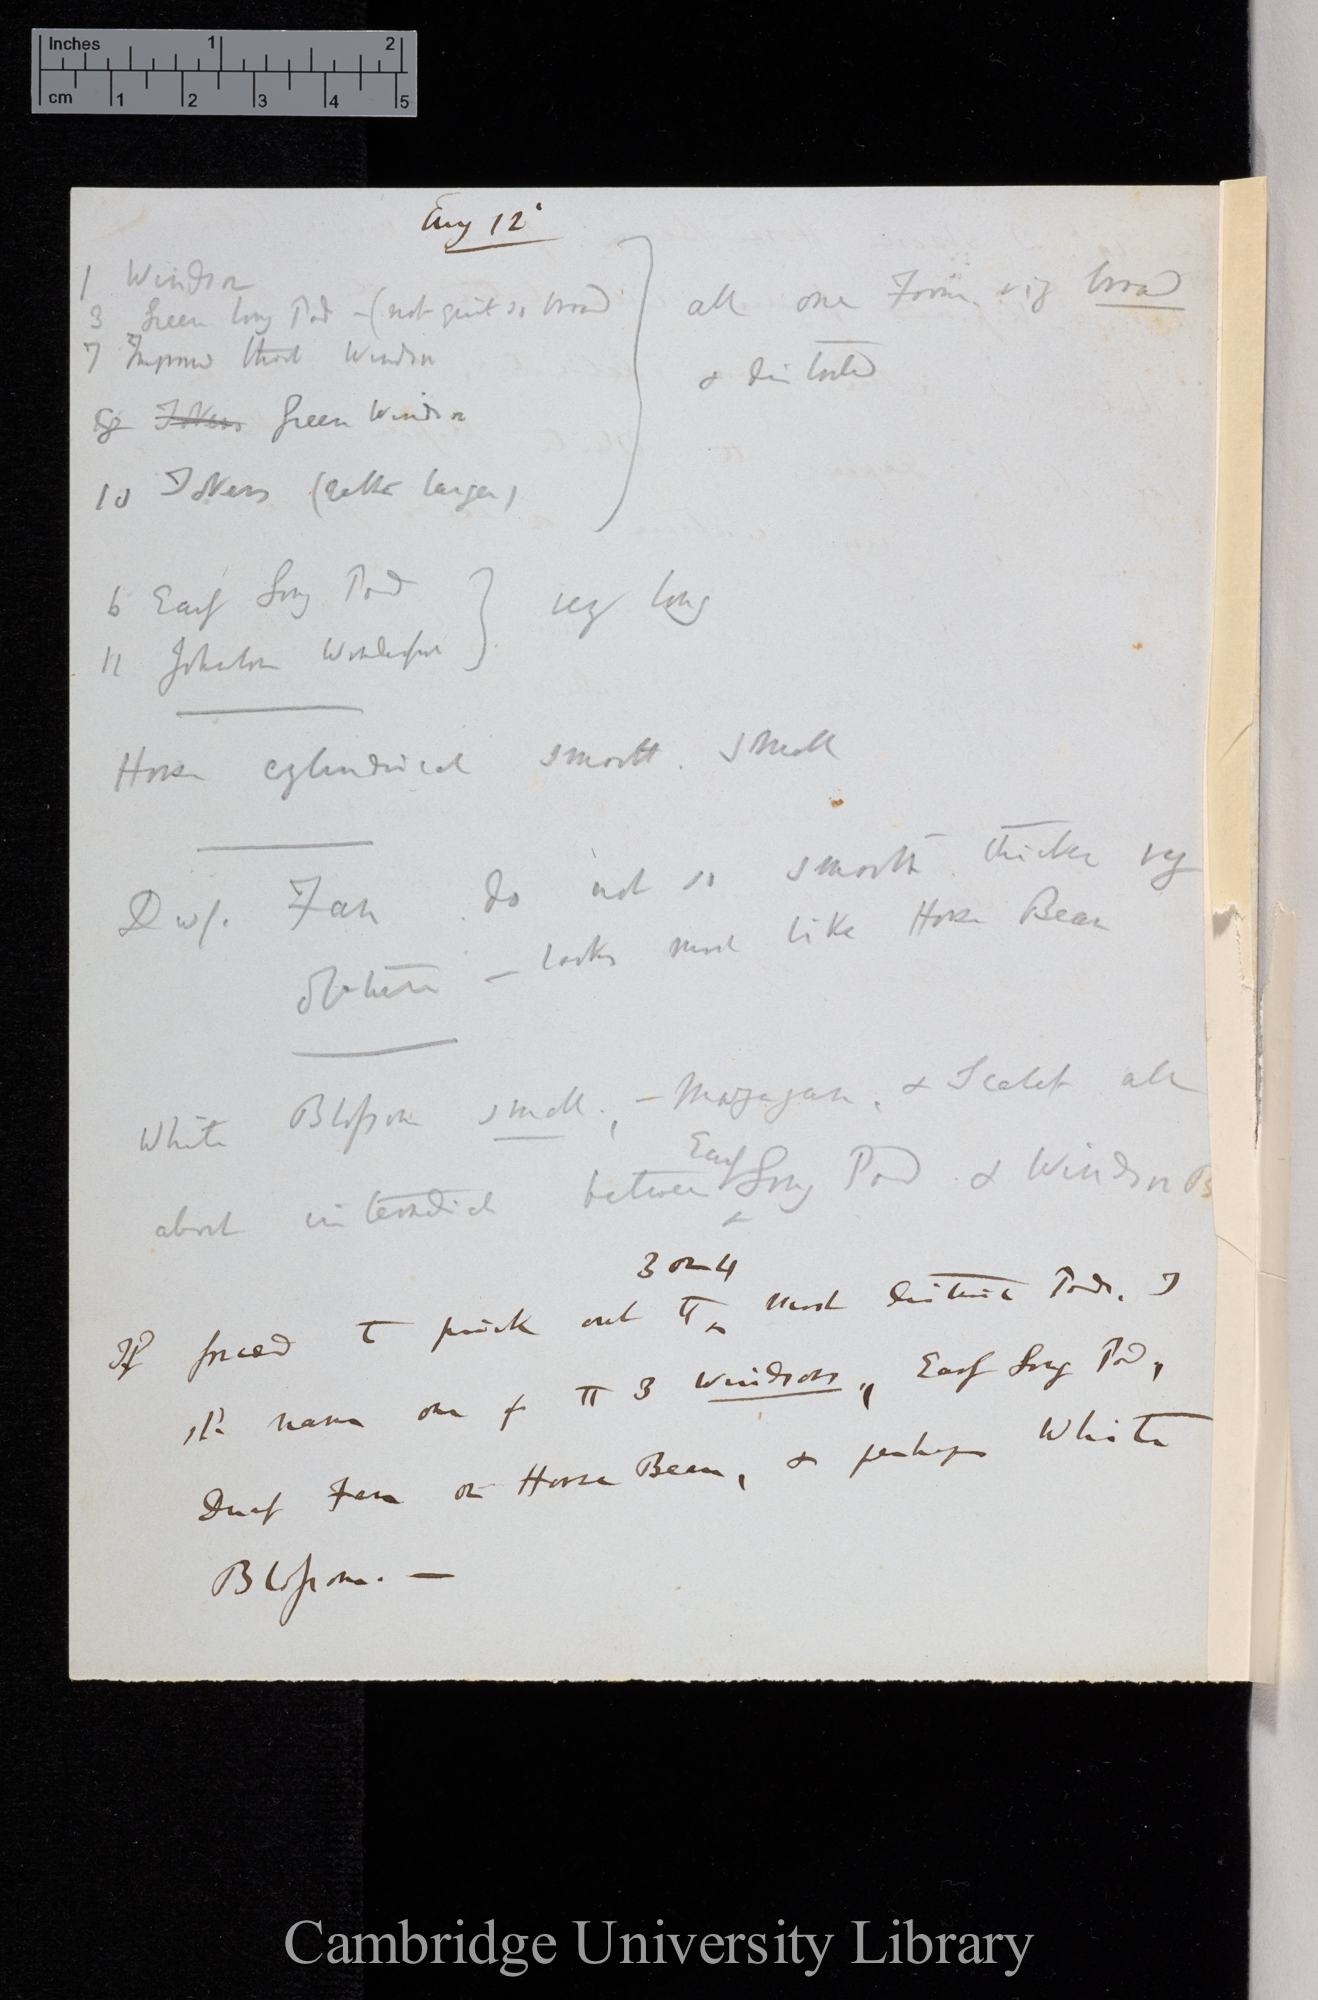 Inches 1 2
cm 1 2 3 4 5
Aug 12
1 Windsor
3 Green Long Pod – (not quite so broad
7 Improved Windsor
8 Tokers Green Windsor
10 Tokers (rather larger)
all one Form. viz broad
& distorted
6 Early Long Pod
11 Johnston Wonderful
very long
Horse cylindrical smooth. small
Dwf. Fan do not so smooth thicker very
obtuse – looks most like Horse Bean
White Blossom small; – Mazagan, & Scarlet all
about intermediate between Early Long Pod & Windsor B
3 or 4
If forced to pick out the most distinct Pods, I
shd. name one of the 3 Windsors, Early Long Pod,
Dwarf Fan or Horse Bean, & perhaps White
Blossom. —
Cambridge University Library